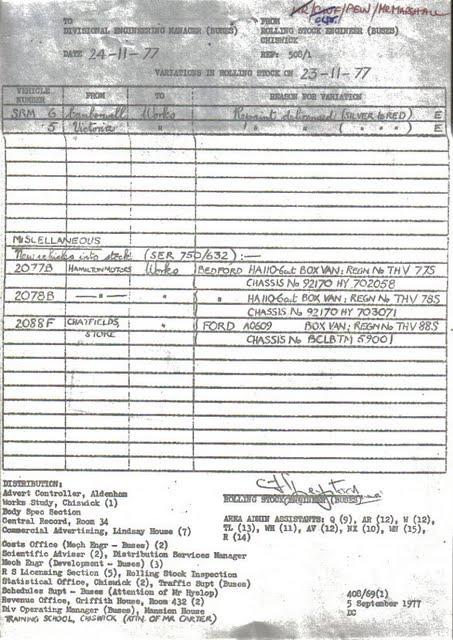 MR/CROF/PEW/MR MARSHALL
TO FROM
DIVISIONAL ENGINEERING MANAGER (BUSES) ROLLING STOCK ENGINEER (BUSES)
CHISWICK
DATE 24-11-77 REF: 508/1
VARIATIONS IN ROLLING STOCK ON 23-11-77
VEHICLE NUMBER FROM TO REASON FOR VARIATION
SRM 6 Camberwell Works Repaint delicensed (SILVER to RED) E
5 Victoria " " " ( " " " ) E
MISCELLANEOUS
New vehicles into stock (SER 750/632) :—
2077B HAMILTON MOTORS Works BEDFORD HA110-6cwt BOX VAN; REGN No THV 77S
CHASSIS No 92170 HY 702058
2078B —"— " " HA110-6cwt BOX VAN; REGN No THV 78S
CHASSIS No 92170 HY 703071
2088F CHATFIELDS, STOKE " FORD A0609 BOX VAN; REGN No THV 88S
CHASSIS No BCLBTM 59001
DISTRIBUTION:
Advert Controller, Aldenham
Works Study, Chiswick (1)
Body Spec Section
Central Record, Room 34
Commercial Advertising, Lindsay House (7)
Costs Office (Mech Engr - Buses) (2)
Scientific Adviser (2), Distribution Services Manager
Mech Engr (Development - Buses) (3)
R S Licensing Section (5), Rolling Stock Inspection
Statistical Office, Chiswick (2), Traffic Supt (Buses)
Schedules Supt - Buses (Attention of Mr Hyslop)
Revenue Office, Griffith House, Room 432 (2)
Div Operating Manager (Buses), Mansion House
TRAINING SCHOOL, CHISWICK (ATTN. OF MR CARTER)
ROLLING STOCK ENGINEER (BUSES)
AREA ADMIN ASSISTANTS: Q (9), AR (12), W (12),
TL (13), WH (11), AV (12), NX (10), MW (15),
R (14)
408/69(1)
5 September 1977
DC